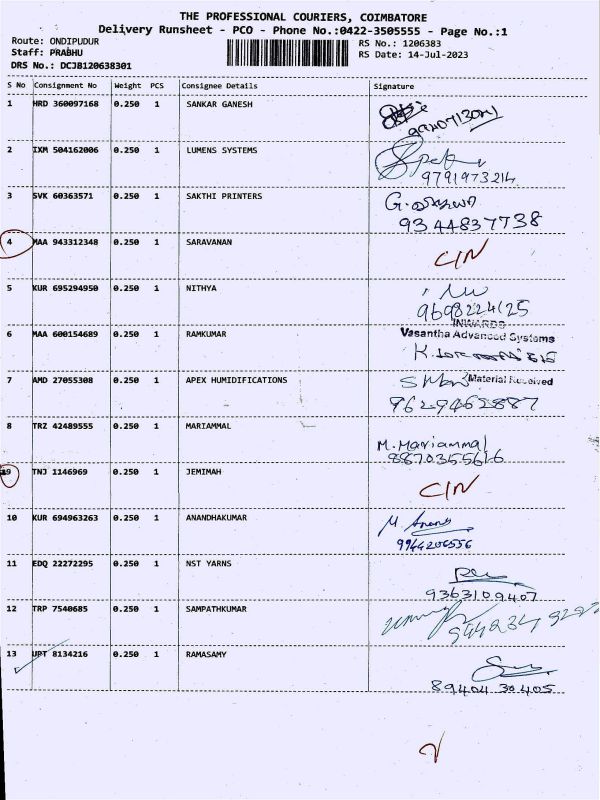 THE PROFESSIONAL COURIERS, COIMBATORE
Delivery Runsheet - PCO - Phone No.:0422-3505555 - Page No.:1
Route: ONDIPUDUR
RS No.: 1206383
Staff: PRABHU
RS Date: 14-Jul-2023
DRS No.: DCJB120638301
S No Consignment No Weight PCS Consignee Details Signature
1 HRD 360097168 0.250 1 SANKAR GANESH
2 IXM 504162006 0.250 1 LUMENS SYSTEMS
9791973214
3 SVK 60363571 0.250 1 SAKTHI PRINTERS
9344837738
4 MAA 943312348 0.250 1 SARAVANAN C/N
5 KUR 695294950 0.250 1 NITHYA
9698224125
INWARDS
6 MAA 600154689 0.250 1 RAMKUMAR Vasantha Advanced Systems
7 AMD 27055308 0.250 1 APEX HUMIDIFICATIONS Material Received
9629462887
8 TRZ 42489555 0.250 1 MARIAMMAL
M. Mariammal
8870355616
9 TNJ 1146969 0.250 1 JEMIMAH
C/N
10 KUR 694963263 0.250 1 ANANDHAKUMAR M. Anand
9944206556
11 EDQ 22272295 0.250 1 NST YARNS
9363109407
12 TRP 7540685 0.250 1 SAMPATHKUMAR
13 UPT 8134216 0.250 1 RAMASAMY
8940430405